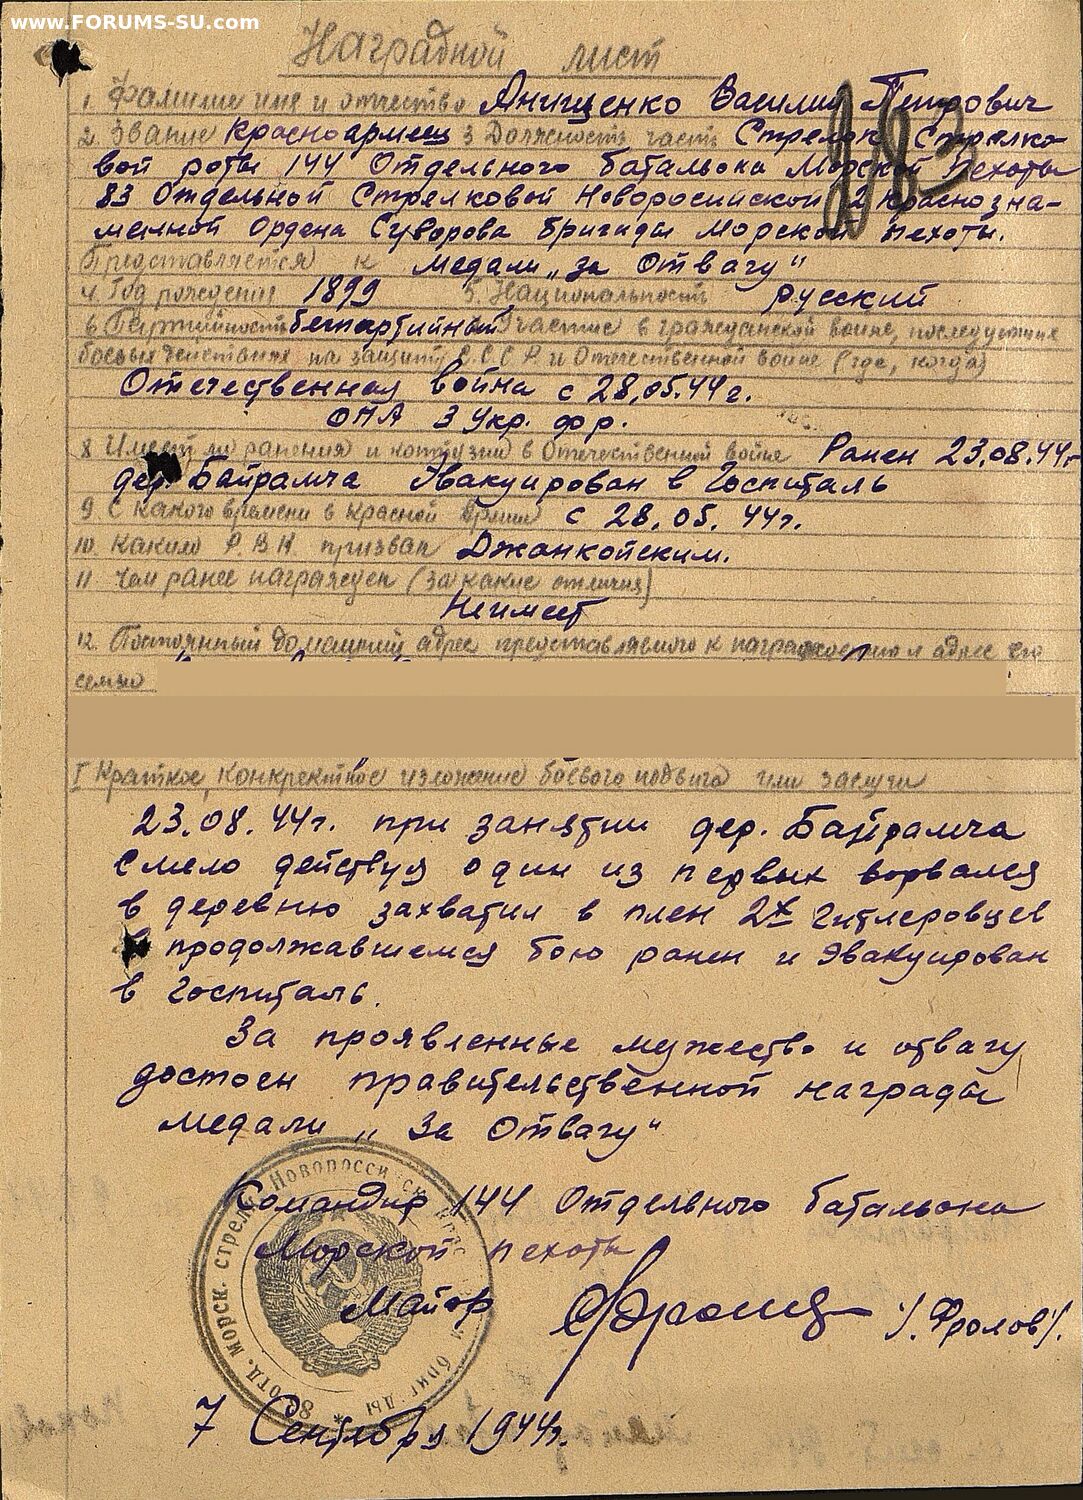 www.FORUMS-SU.com
Наградной лист
1. Фамилие имя и отчество Анищенко Василий Петрович
2. Звание Красноармеец 3 Должность, часть Стрелок Стрелко-
вой роты 144 Отдельного батальона Морской Пехоты
83 Отдельной Стрелковой Новоросийской 2 краснозна-
менной Ордена Суворова бригады Морской пехоты.
Представляется к медали „за Отвагу"
4. Год рождения 1899 5. Национальность русский
6 Партийность беспартийный Участие в гражданской войне, последующих
боевых действиях на защиту С.С.С.Р. и Отечественной войне (где, когда)
Отечественная война с 28,05.44г.
ОПА 3 Укр. фр.
8 Имеет ли ранения и контузии в Отечественной войне Ранен 23.08.44г
дер. Байрамча Эвакуирован в Госпиталь
9 С какого времени в красной армии с 28.05.44г.
10. Каким Р.В.К. призван Джанкойским.
11 Чем ранее награжден (за какие отличия)
Неимеет
12. Постоянный домашний адрес представляемого к награждению и адрес его
семьи
I Краткое, конкретное изложение боевого подвига или заслуги
23.08.44г. при занятии дер. Байрамча
Смело действуя один из первых ворвался
в деревню захватил в плен 2х Гитлеровцев
в продолжавшемся бою ранен и Эвакуирован
в Госпиталь.
За проявленные мужество и отвагу
достоен правительственной награды
медали „За Отвагу"
Командир 144 Отдельного батальона
Морской пехоты
Майор /. Фролов/.
7 Сентября 1944г.
83 отд. морск. стрелк. Новоросси бригады